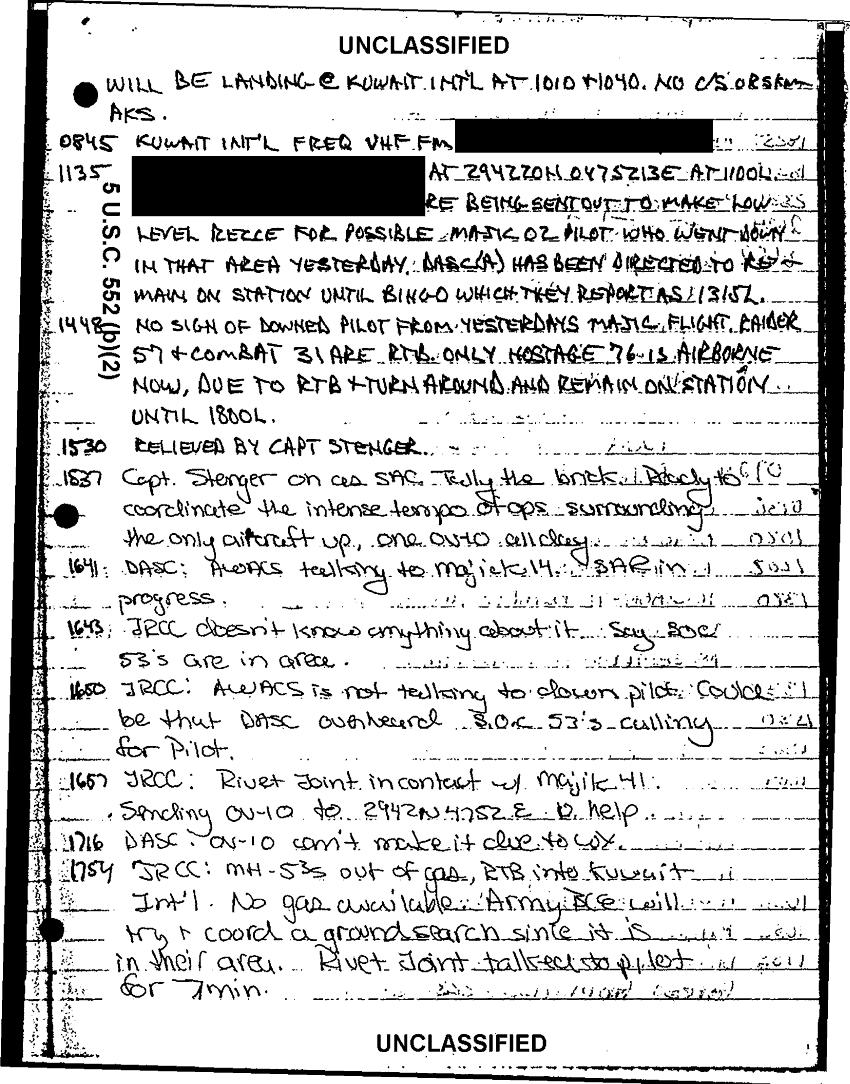 UNCLASSIFIED
WILL BE LANDING @ KUWAIT INT'L AT 1010 + 1040. NO C/S OR SKM
AKS.
0845 KUWAIT INT'L FREQ VHF FM
1135 AT 294220N 0475213E AT 1100L.
RE BEING SENT OUT TO MAKE LOW
LEVEL RECCE FOR POSSIBLE MAJIC 02 PILOT WHO WENT DOWN
IN THAT AREA YESTERDAY. DASC(A) HAS BEEN DIRECTED TO RE-
MAIN ON STATION UNTIL BINGO WHICH THEY REPORT AS 1315L.
1448 NO SIGN OF DOWNED PILOT FROM YESTERDAYS MAJIC FLIGHT. RAIDER
57 + COMBAT 31 ARE RTB. ONLY HOSTAGE 76 IS AIRBORNE
NOW, DUE TO RTB + TURN AROUND AND REMAIN ON STATION
UNTIL 1800L.
1530 RELIEVED BY CAPT STENGER.
1537 Capt. Stenger on as SAC. Truly the brick. Ready to
coordinate the intense tempo of ops surrounding
the only aircraft up, one OV-10 all day.
1641: DASC: AWACS talking to Majick 14. SAR in
progress.
1643: JRCC doesn't know anything about it. Say SOC
53's are in area.
1650 JRCC: AWACS is not talking to down pilot. Could
be that DASC overheard S.O.C 53's calling
for Pilot.
1657 JRCC: Rivet Joint in contact w/ Majik 41.
Sending OV-10 to 2942N 4752E to help.
1716 DASC: OV-10 can't make it due to wx.
1754 JRCC: MH-53s out of gas, RTB into Kuwait
Int'l. No gas available. Army BCE will
try + coord a ground search since it is
in their area. Rivet Joint talked to pilot
for 7min.
5 U.S.C. 552 (b)(2)
UNCLASSIFIED